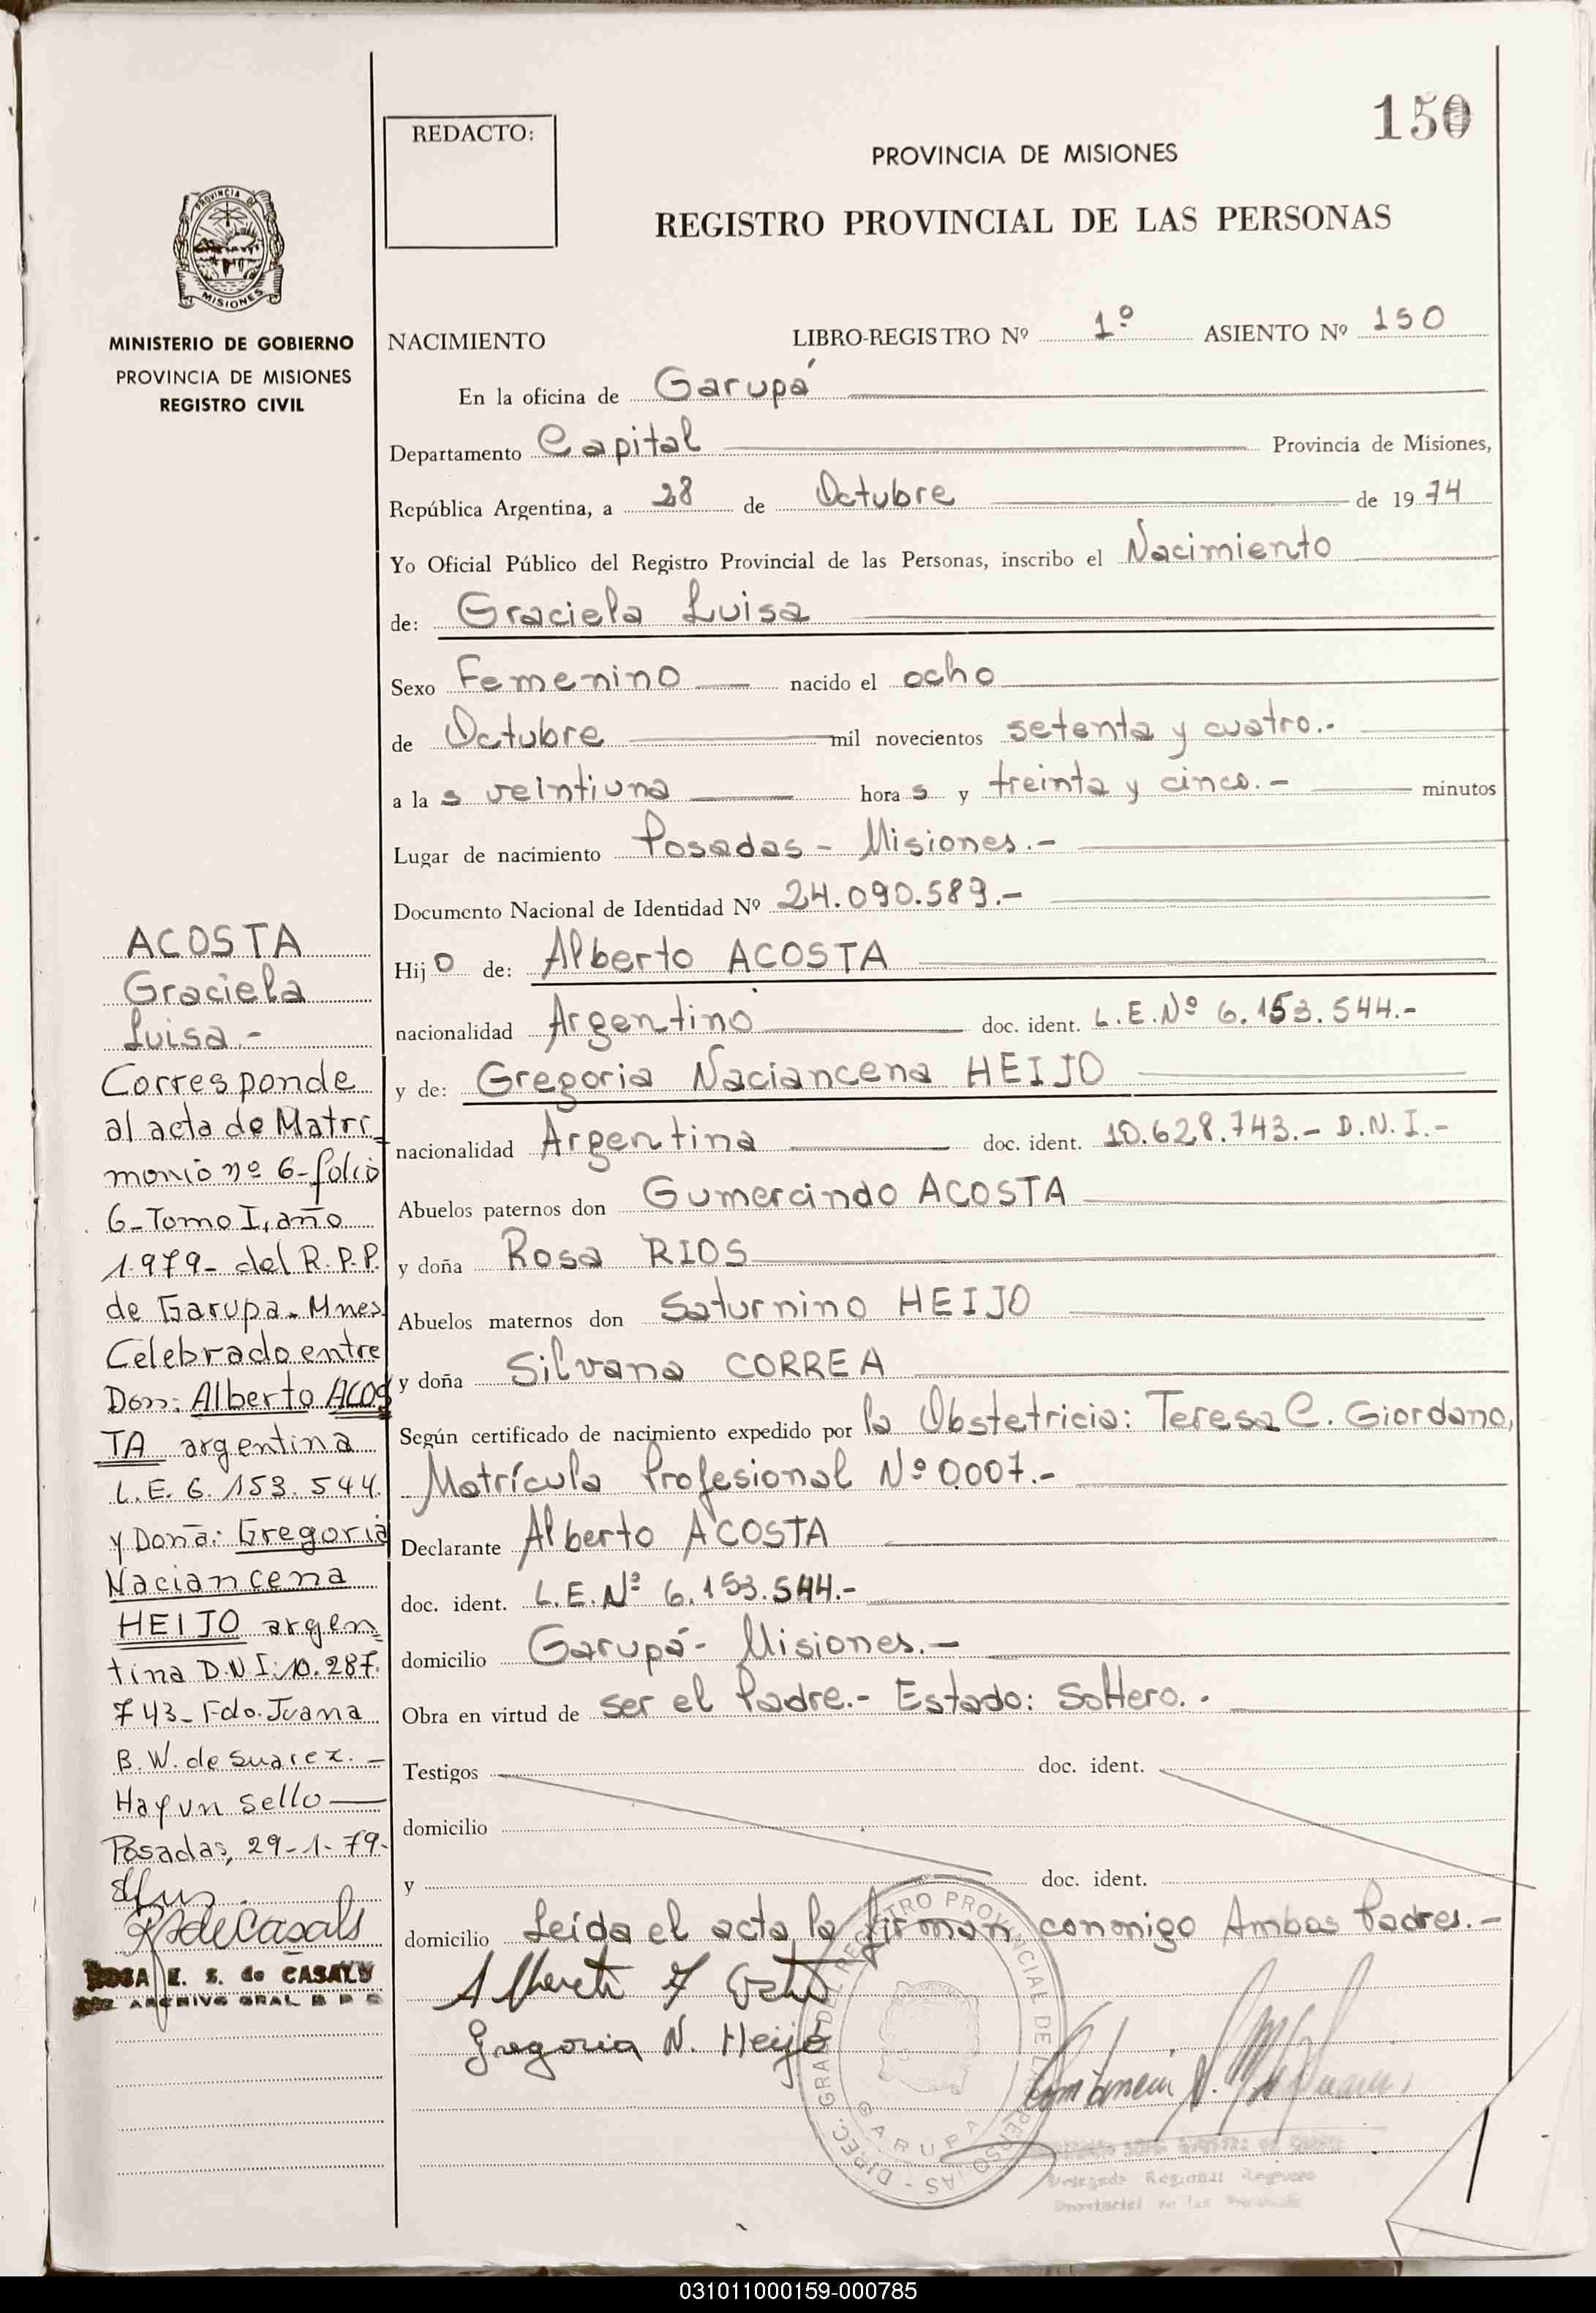 150
REDACTO:
PROVINCIA DE MISIONES
REGISTRO PROVINCIAL DE LAS PERSONAS
PROVINCIA DE
MISIONES
MINISTERIO DE GOBIERNO
PROVINCIA DE MISIONES
REGISTRO CIVIL
NACIMIENTO LIBRO-REGISTRO Nº 1º ASIENTO Nº 150
En la oficina de Garupá
Departamento Capital Provincia de Misiones,
República Argentina, a 28 de Octubre de 1974
Yo Oficial Público del Registro Provincial de las Personas, inscribo el Nacimiento
de: Graciela Luisa
Sexo Femenino nacido el ocho
de Octubre mil novecientos setenta y cuatro.-
a la s veintiuna hora s y treinta y cinco.- minutos
Lugar de nacimiento Posadas - Misiones.-
Documento Nacional de Identidad Nº 24.090.589.-
Hij o de: Alberto ACOSTA
nacionalidad Argentino doc. ident. L.E.Nº 6.153.544.-
y de: Gregoria Naciancena HEIJO
nacionalidad Argentina doc. ident. 10.628.743.- D.N.I.-
Abuelos paternos don Gumercindo ACOSTA
y doña Rosa RIOS
Abuelos maternos don Saturnino HEIJO
y doña Silvana CORREA
Según certificado de nacimiento expedido por la Obstetricia: Teresa C. Giordano,
Matrícula Profesional Nº 0007.-
Declarante Alberto ACOSTA
doc. ident. L.E.Nº 6.153.544.-
domicilio Garupá- Misiones.-
Obra en virtud de ser el Padre.- Estado: Soltero.-
Testigos doc. ident.
domicilio
y doc. ident.
domicilio Leída el acta la firman conmigo Ambos Padres.-
Gregoria N. Heijo
DIREC. GRAL. DEL REGISTRO PROVINCIAL DE LAS PERSONAS
GARUPA
Delegada Regional Registro
Provincial de las Personas
ACOSTA
Graciela
Luisa.-
Corresponde
al acta de Matri-
monio nº 6-folio
6-Tomo I, año
1.979- del R.P.P.
de Garupa-Mnes.
Celebrado entre
Don: Alberto ACOS
TA argentina
L.E. 6.153.544.
y Dona: Gregoria
Naciancena
HEIJO argen
tina D.N.I: 10.287.
743- Fdo. Juana
B.W. de Suarez.-
Hay un sello
Posadas, 29-1-79.-
R S de Casals
ROSA E. S. de CASALS
ARCHIVO GRAL R P P
031011000159-000785